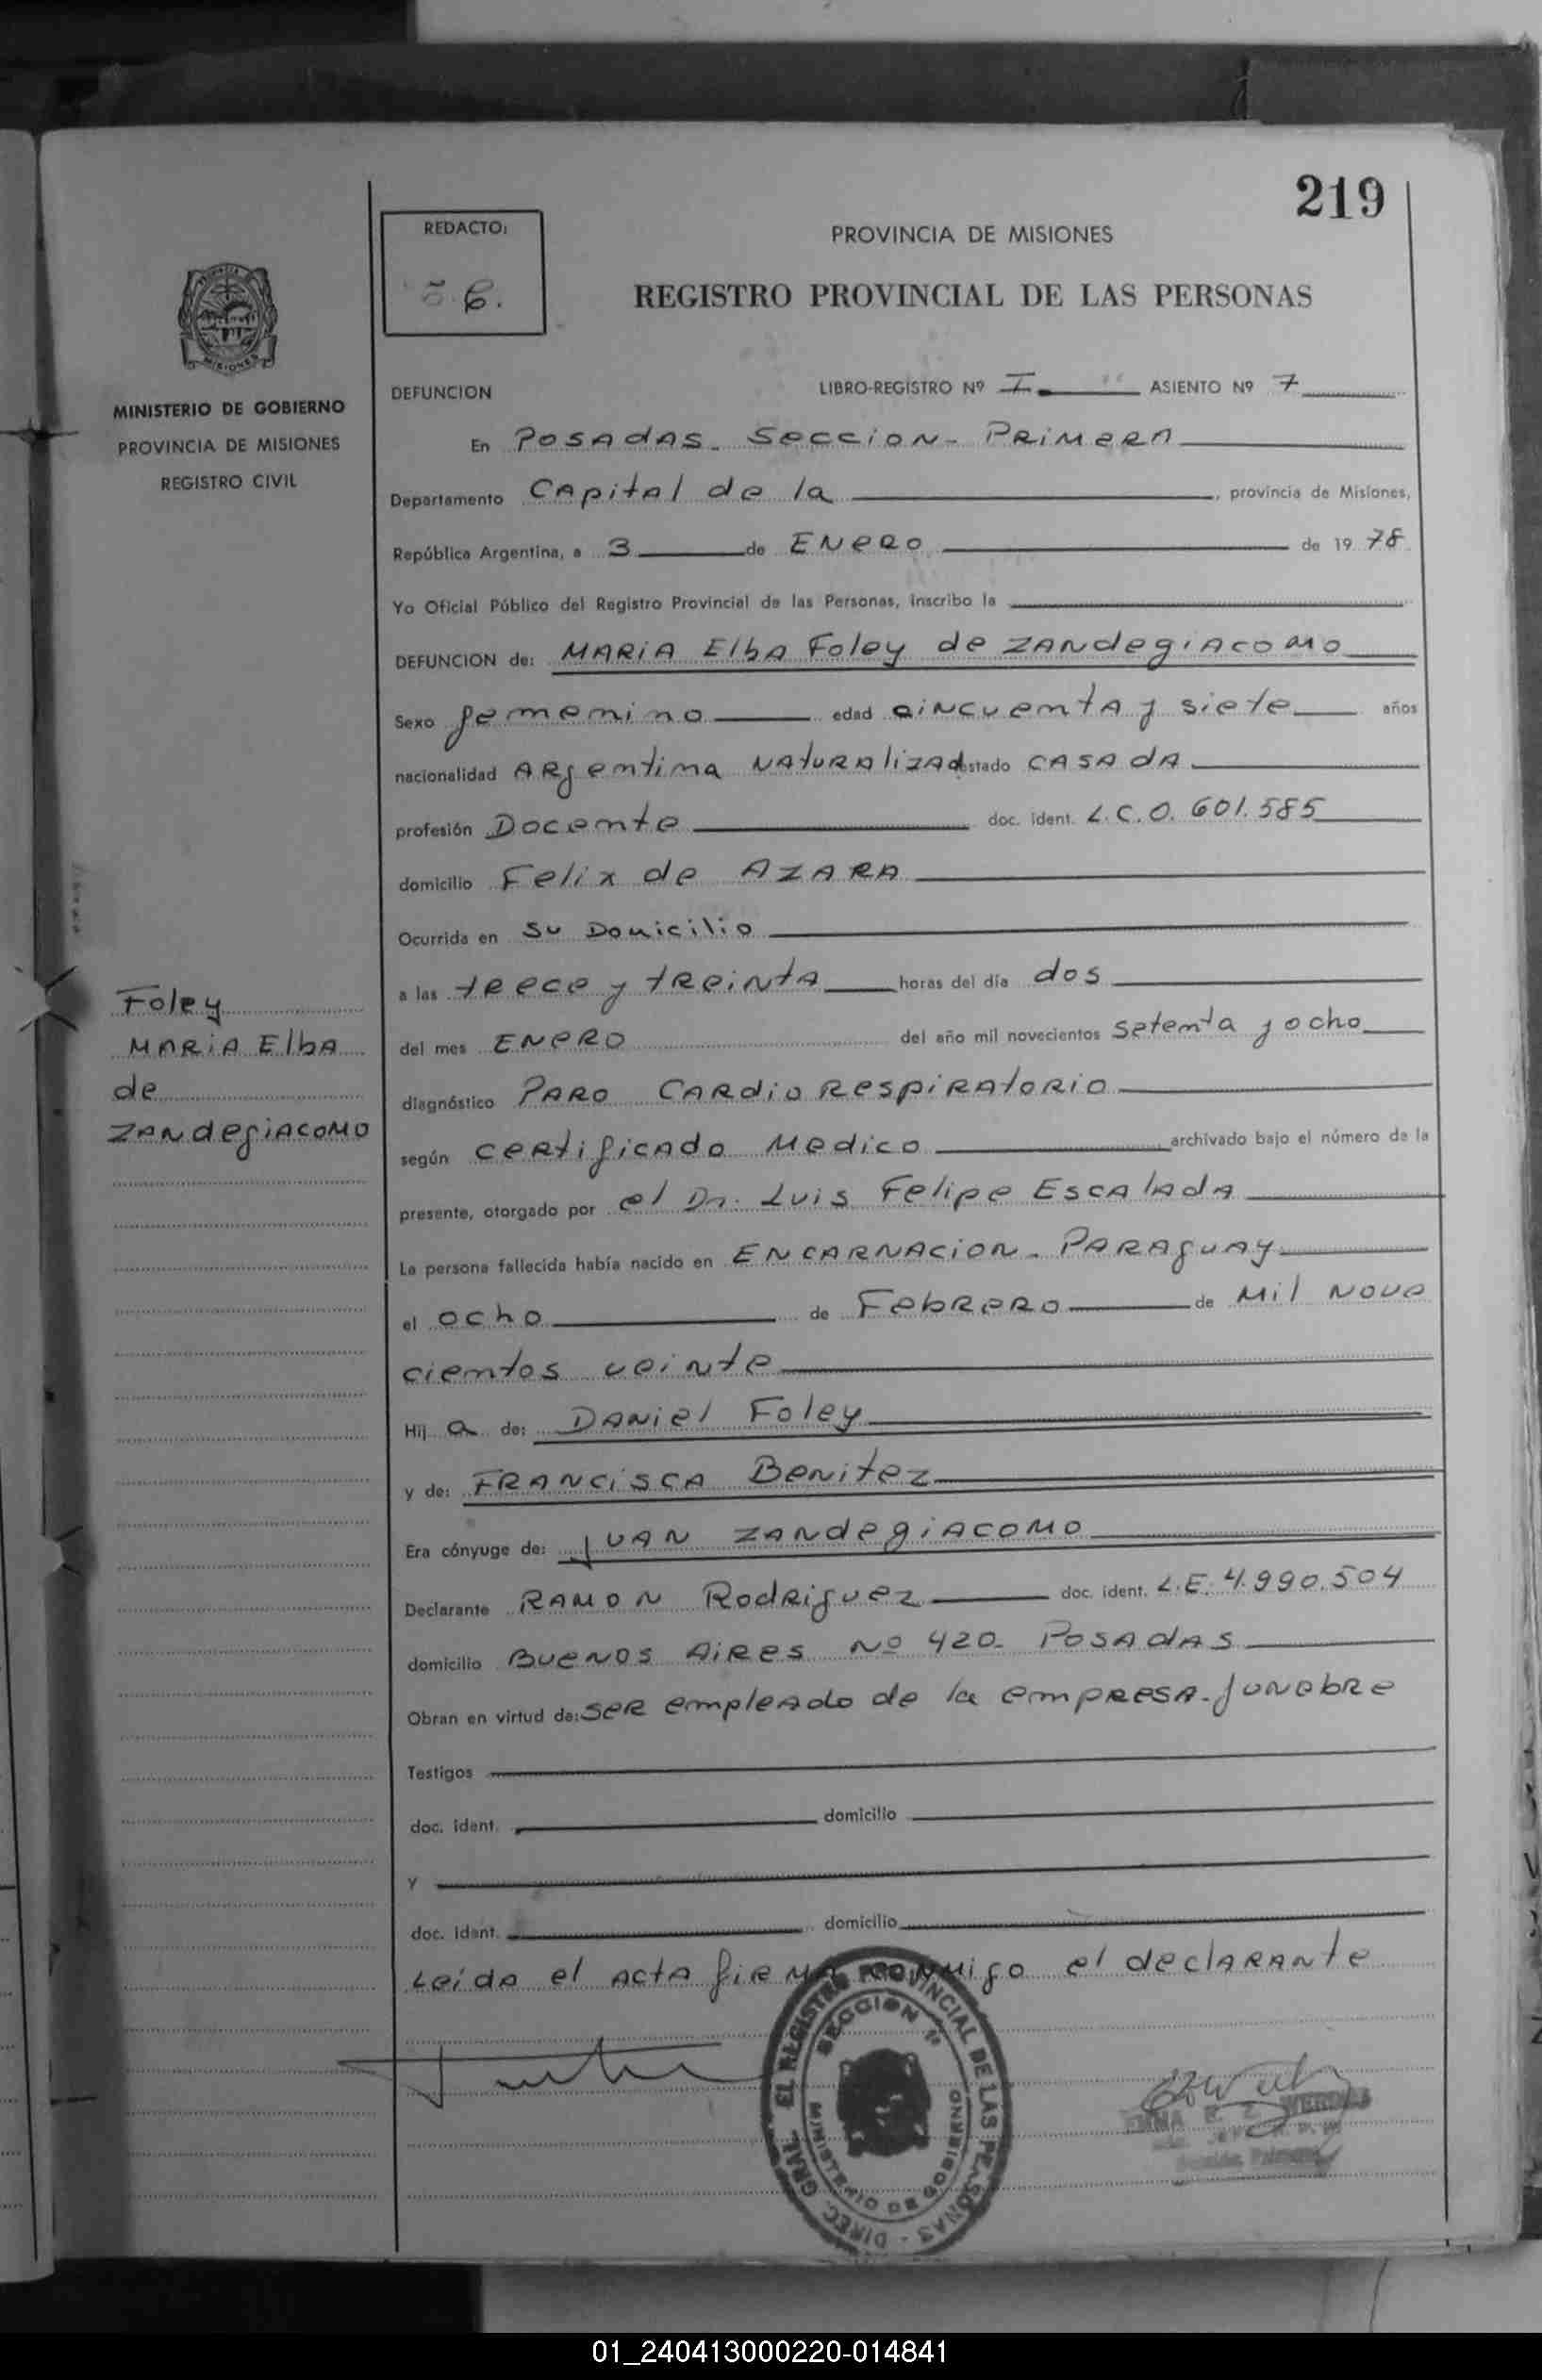 219
REDACTO:
PROVINCIA DE MISIONES
REGISTRO PROVINCIAL DE LAS PERSONAS
MISIONES
MINISTERIO DE GOBIERNO
PROVINCIA DE MISIONES
REGISTRO CIVIL
DEFUNCION LIBRO-REGISTRO Nº I. ASIENTO Nº 7
En Posadas. Seccion - Primera
Departamento Capital de la , provincia de Misiones,
República Argentina, a 3 de Enero de 19 78
Yo Oficial Público del Registro Provincial de las Personas, inscribo la
DEFUNCION de: Maria Elba Foley de Zandegiacomo
Sexo femenino edad cincuenta y siete años
nacionalidad Argentina Naturalizad estado casada
profesión Docente doc. ident. L.C.0.601.585
domicilio Felix de Azara
Ocurrida en su Domicilio
a las trece y treinta horas del día dos
del mes Enero del año mil novecientos setenta y ocho
diagnóstico Paro Cardio Respiratorio
según certificado Medico archivado bajo el número de la
presente, otorgado por el Dr. Luis Felipe Escalada
La persona fallecida había nacido en Encarnacion - Paraguay
el ocho de Febrero de Mil nove
cientos veinte
Hij a de: Daniel Foley
y de: Francisca Benitez
Era cónyuge de: Juan Zandegiacomo
Declarante Ramon Rodriguez doc. ident. L.E. 4.990.504
domicilio Buenos Aires Nº 420- Posadas
Obran en virtud de: ser empleado de la empresa-funebre
Testigos
doc. ident. domicilio
y
doc. ident. domicilio
Leida el acta firma conmigo el declarante
Foley
Maria Elba
de
Zandegiacomo
DIREC. GRAL. EL REGISTRO PROVINCIAL DE LAS PERSONAS -
SECCION
MINISTERIO DE GOBIERNO
01_240413000220-014841